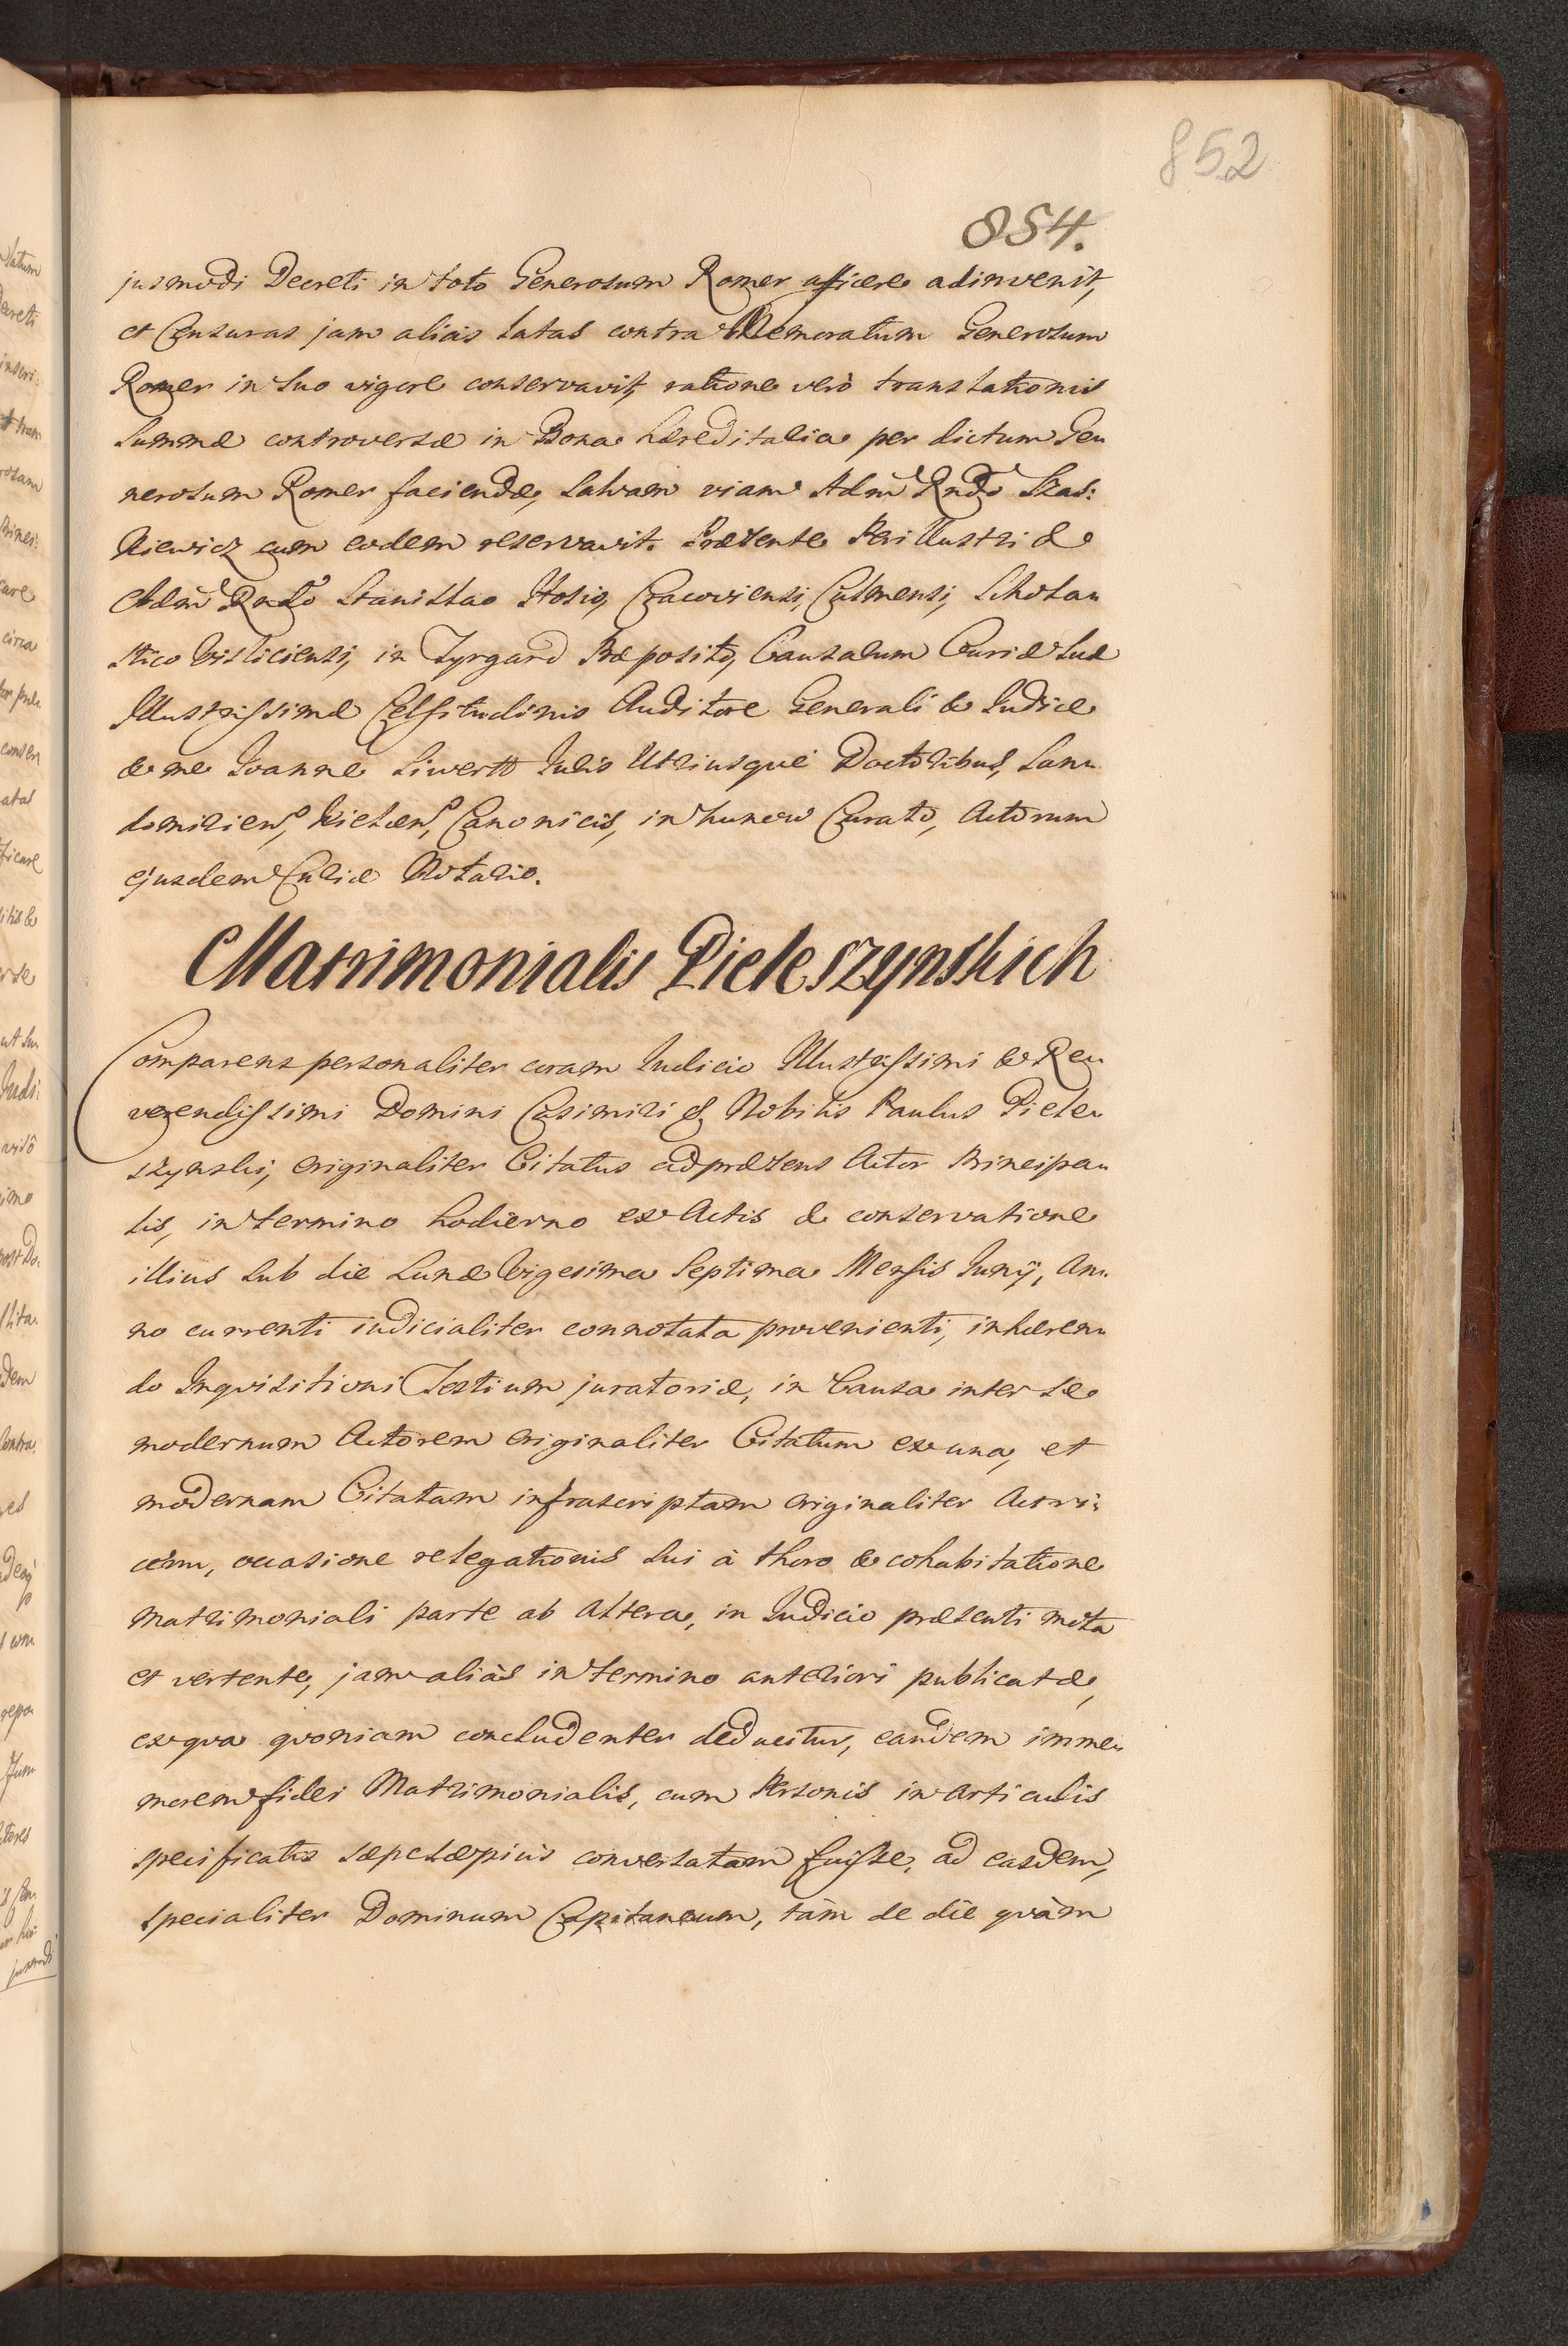 852
854.
jusmodi Decreti in toto Generosum Romer afficere adinvenit,
et Censuras jam aliàs latas contra Memoratum Generosum
Romer in suo vigore conservavit, ratione verò translationis
summæ controversæ in Bona hæreditaria per dictum Ge„
nerosum Romer faciendæ, salvam viam Adm̃ Rndo Stas:
kiewicz cum eodem reservavit. Præsente Perillustri &
Adm̃ Rndo Stanislao Hosio, Cracoviensi, Culmensi, Schola„
stico Visliciensi, in Tyrgard Præposito, Causarum Curiæ Suæ
Illustrissimæ Celsitudinis Auditore Generali & Judice
& me Joanne Siwertt Juris Utriusque Doctoribus, San„
domirien, Kielcen, Canonicis, in Curato, Actorum
ejusdem Curiæ Notario.
Matrimonialis Pieleszynskich
Comparens personaliter coram Judicio Illustrissimi & Re„
verendissimi Domini Casimiri & Nobilis Paulus Piele„
szynski, originaliter Citatus ad præsens Actor Principa„
lis, in termino hodierno ex Actis & conservatione
illius sub die Lunæ Vigesima Septima Mensis Junij, An„
no currenti iudicialiter connotata provenienti, inhæren„
do Inquisitioni Testium juratoriæ, in Causa inter se
modernum Actorem originaliter Citatum ex una, et
modernam Citatam infrascriptam originaliter Actri:
cem, occasione relegationis sui à thoro & cohabitatione
matrimoniali parte ab altera, in Judicio præsenti mota
et vertente, jam aliàs in termino anteriori publicatæ,
ex qua quoniam concludenter deducitur, eandem imme„
morem fidei Matrimonialis, cum Personis in Articulis
specificatis sæpesæpiùs conversatam fuisse, ad easdem,
specialiter Dominum Capitaneum, tàm de die quàm